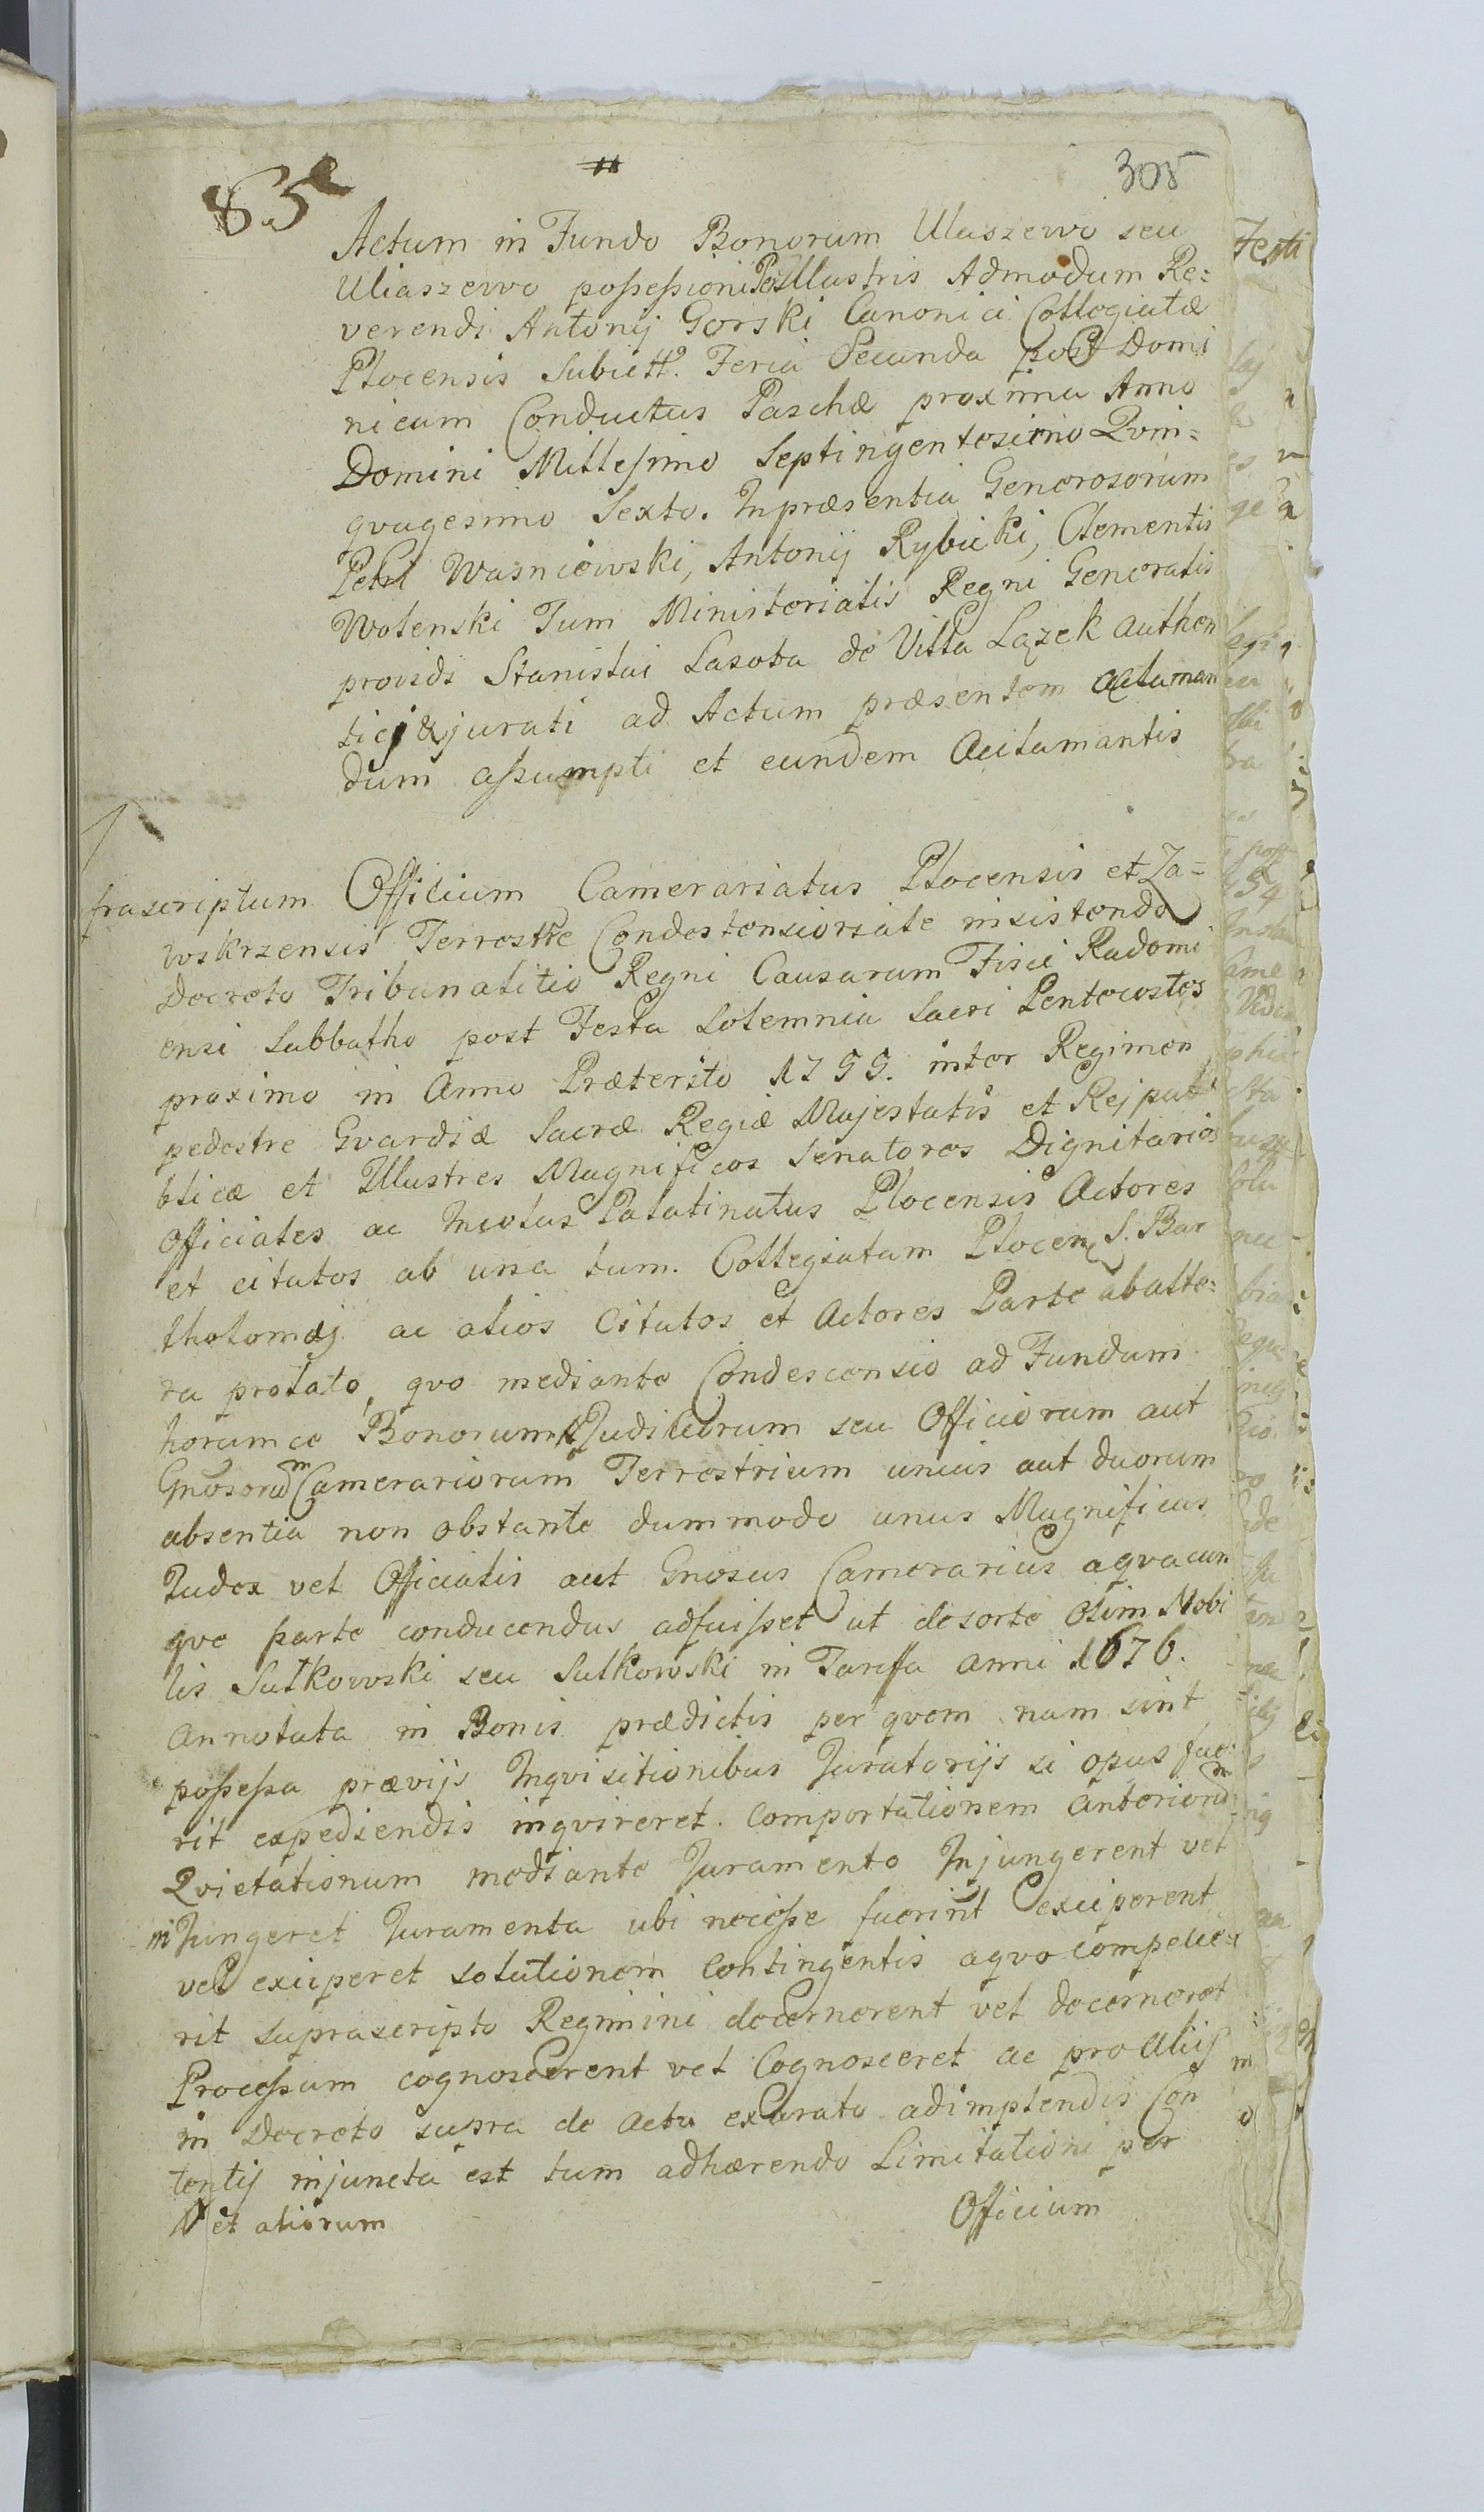 85
305
Actum in Fundo Bonorum Ulaszewo seu
Uliaszewo possessioni Illustris Admodum Re=
verendi Antonij Gorski Canonici Collegiatæ
Plocensis Subiett. Feria Secunda post Domi
nicam Conductus Paschæ proxima Anno
Domini Millesimo Septingentesimo Qvin=
qvagesimo Sexto. Inpræsentia Generosorum
Petri Wasniewski, Antonij Rybicki, Clementis
Wolenski Tum Ministerialis Regni Generalis
providi Stanislai Lasota de Villa Lązek authen
tici & jurati ad Actum præsentem acclaman
dum assumpti et eundem Acclamantis
frascriptum Officium Camerariatus Plocensis et Za=
wskrzensis Terrestre Condestensioriale insistendo
Decreto Tribunalitio Regni Causarum Fisci Radomi
ensi Sabbatho post Festa Solemnia Sacri Pentecostes
proximo in Anno Præterito 1755. inter Regimen
pedestre Gvardiæ Sacræ Regiæ Majestatis et Reipub
blicæ et Illustres Magnificos Senatores Dignitarios
Officiales ac Incolas Palatinatus Plocensis Actores
et citatos ab una tum. Collegiatam Plocen S. Bar
tholomæj ac alios Citatos et Actores Parte abalte=
ra prolato, qvo mediante Condescensio ad Fundum
horumce Bonorum Judiciorum seu Officiorum aut
Gnosorum Camerariorum Terrestrium unius aut duorum
absentia non obstante dummodo unus Magnificus
Judex vel Officialis aut Gnosus Camerarius aqvacun
qve parte conducendus adfuisset ut desorte Olim Nobi
lis Sułkowski seu Sulkowski in Tariffa anni 1676.
annotata in Bonis prædictis per qvem nam sint
possessa prævijs Inqvisitionibus Juratorijs si opus fue
rit expediendis inqvireret. Comportationem anteriorum
Qvietationum mediante Juramento Injungerent vel
inJungeret Juramenta ubi necesse fuerint exciperent
vel exciperet solutionem Contingentis aqvo competie=
rit suprascripto Regimini decernerent vel decerneret
Processum cognoscerent vel Cognosceret ac pro Aliis
in Decreto supra de actu exarato adimplendis Con
tentis injuncta est tum adhærendo Limitationi per
et aliorum
Officium